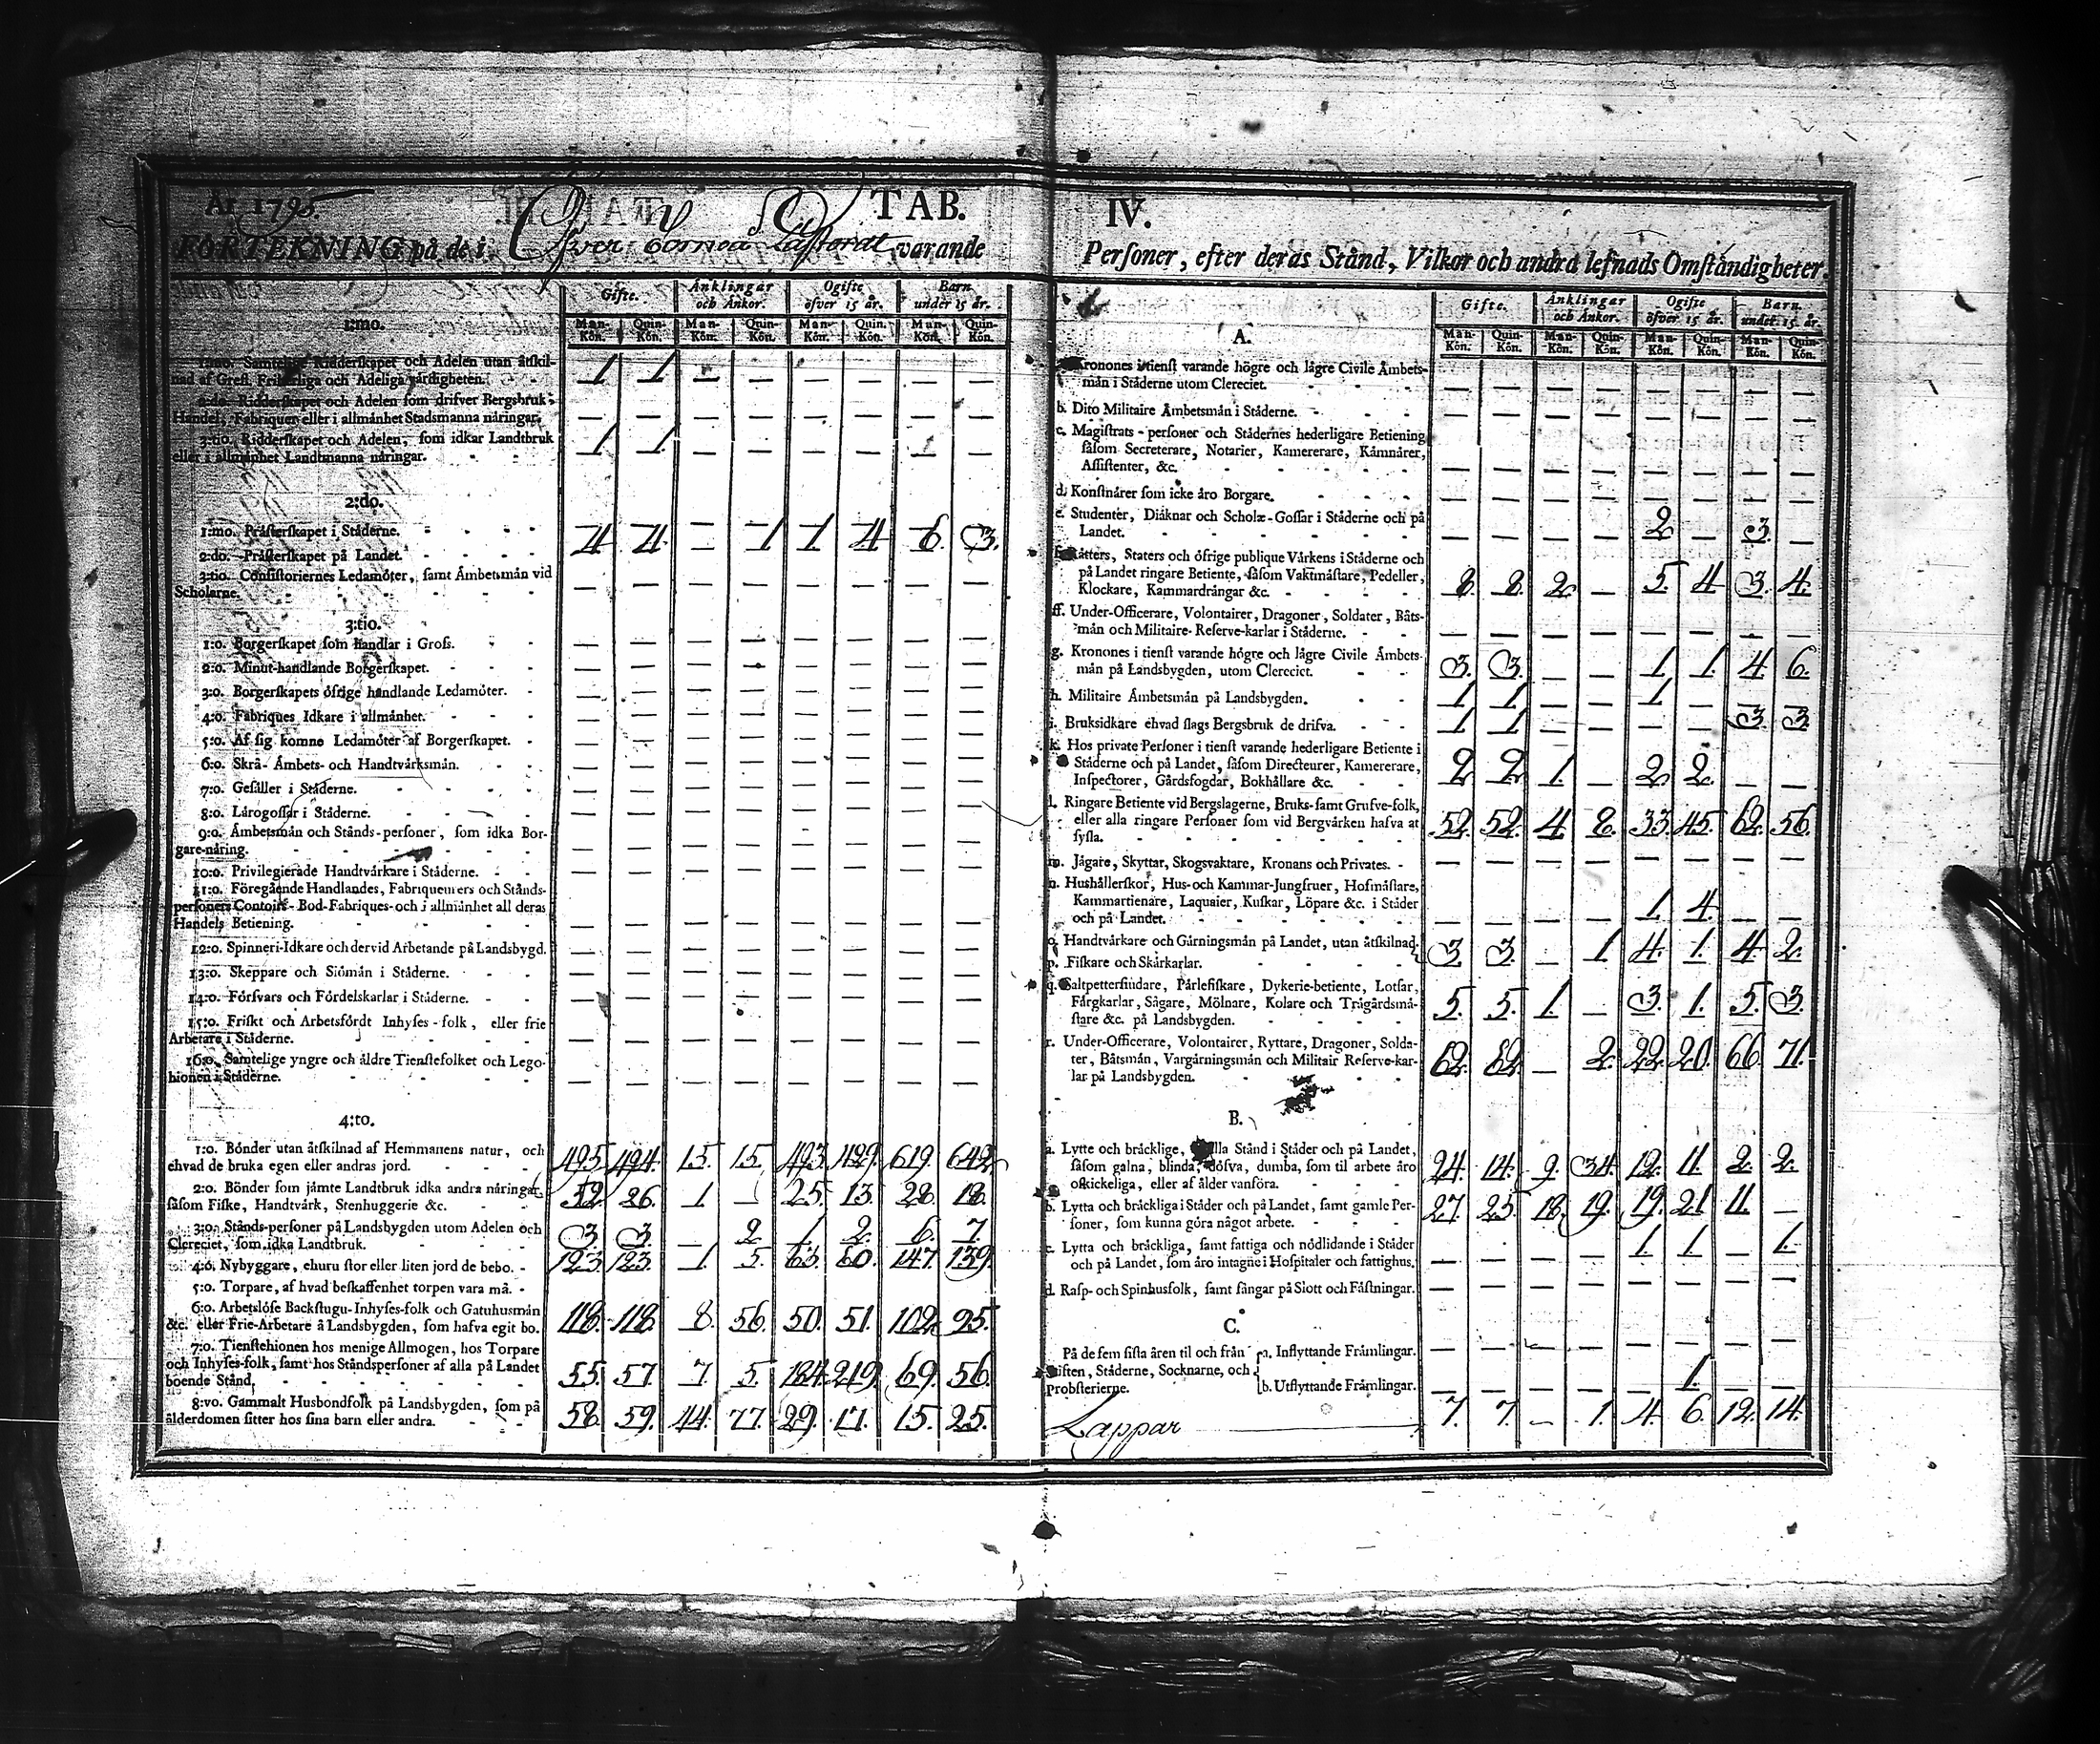 År 1795. TAB. IV.
FÖRTEKNING på de i Öfver Torneå varande Personer, efter deras Stånd, Vilkor och andra lefnads Omständigheter.
Gifte. Änklingar och Änkor. Ogifte öfver 15 år. Barn under 15 år.
Man-Kön. Quin-Kön. Man-Kön. Quin-Kön. Man-Kön. Quin-Kön. Man-Kön. Quin-Kön.
1:mo.
1:mo. Samtelige Ridderskapet och Adelen utan åtskil-
nad af Grefl. Friherrliga och Adeliga värdigheten. 1 1 — — — — — —
2:do. Ridderskapet och Adelen som drifver Bergsbruk,
Handel, Fabriquer eller i allmänhet Stadsmanna näringar. — — — — — — — —
3:tio. Ridderskapet och Adelen, som idkar Landtbruk
eller i allmänhet Landtmanna näringar. 1 1 — — — — — —
2:do.
1:mo. Prästerskapet i Städerne.
2:do. Prästerskapet på Landet. 4 4 — 1 1 4 6. 3.
3:tio. Consistoriernes Ledamöter, samt Ämbetsmän vid
Scholarne. — — — — — — — —
3:tio.
1:o. Borgerskapet som handlar i Gross. — — — — — — — —
2:o. Minut-handlande Borgerskapet. — — — — — — — —
3:o. Borgerskapets öfrige handlande Ledamöter. — — — — — — — —
4:o. Fabriques Idkare i allmänhet. — — — — — — — —
5:o. Af sig komne Ledamöter af Borgerskapet. — — — — — — — —
6:o. Skrå- Ämbets- och Handtvärksmän. — — — — — — — —
7:o. Gesäller i Städerne. — — — — — — — —
8:o. Lärogossar i Städerne. — — — — — — — —
9:o. Ämbetsmän och Stånds-personer, som idka Bor-
gare-näring. — — — — — — — —
10:o. Privilegierade Handtvärkare i Städerne. — — — — — — — —
11:o. Föregående Handlandes, Fabriqueurers och Stånds-
personers Contoirs- Bod-Fabriques- och i allmänhet all deras
Handels Betiening. — — — — — — — —
12:o. Spinneri-Idkare och dervid Arbetande på Landsbygd. — — — — — — — —
13:o. Skeppare och Siömän i Städerne. — — — — — — — —
14:o. Försvars och Fördelskarlar i Städerne. — — — — — — — —
15:o. Friskt och Arbetsfördt Inhyses-folk, eller frie
Arbetare i Städerne. — — — — — — — —
16:o. Samtelige yngre och äldre Tienstefolket och Lego-
hionen i Städerne. — — — — — — — —
4:to.
1:o. Bönder utan åtskilnad af Hemmanens natur, och
ehvad de bruka egen eller andras jord. 495. 494. 15. 15. 493. 429. 619. 642.
2:o. Bönder som jämte Landtbruk idka andra näringar,
såsom Fiske, Handtvärk, Stenhuggerie &c. 32. 26. 1 — 25. 13. 28. 18.
3:o. Stånds-personer på Landsbygden utom Adelen och
Clereciet, som idka Landtbruk. 3 3 — 2 1 2. 6. 7.
4:o. Nybyggare, ehuru stor eller liten jord de bebo. 123. 123. 1. 5. 63. 60. 147. 139.
5:o. Torpare, af hvad beskaffenhet torpen vara må.
6:o. Arbetslöse Backstugu-Inhyses-folk och Gatuhusmän
&c. eller Frie-Arbetare å Landsbygden, som hafva egit bo. 118. 118. 8. 56. 50. 51. 102. 95.
7:o. Tienstehionen hos menige Allmogen, hos Torpare
och Inhyses-folk, samt hos Ståndspersoner af alla på Landet
boende Stånd. 55. 57. 7. 5. 184. 219. 69. 56.
8:vo. Gammalt Husbondfolk på Landsbygden, som på
ålderdomen sitter hos sina barn eller andra. 58. 59. 44. 77. 29. 17. 15. 25.
Gifte. Änklingar och Änkor. Ogifte öfver 15 år. Barn under 15 år.
Man-Kön. Quin-Kön. Man-Kön. Quin-Kön. Man-Kön. Quin-Kön. Man-Kön. Quin-Kön.
A.
Kronones i tienst varande högre och lägre Civile Ämbets-
män i Städerne utom Clereciet. — — — — — — — —
b. Dito Militaire Ämbetsmän i Städerne. — — — — — — — —
c. Magistrats-personer och Städernes hederligare Betiening
såsom Secreterare, Notarier, Kamererare, Kämnärer,
Assistenter, &c. — — — — — — — —
d. Konstnärer som icke äro Borgare. — — — — — — — —
e. Studenter, Diäknar och Scholæ-Gossar i Städerne och på
Landet. — — — — 2 — 3. —
Rätters, Staters och öfrige publique Värkens i Städerne och
på Landet ringare Betiente, såsom Vaktmästare, Pedeller,
Klockare, Kammardrängar &c. 8. 8. 2. — 5. 4 3. 4.
ff. Under-Officerare, Volontairer, Dragoner, Soldater, Båts-
män och Militaire-Reserve-karlar i Städerne. — — — — — — — —
g. Kronones i tienst varande högre och lägre Civile Ämbets-
män på Landsbygden, utom Clereciet. 3. 3. — — 1 1. 4. 6.
h. Militaire Ämbetsmän på Landsbygden. 1 1 — — 1 — — —
i. Bruksidkare ehvad slags Bergsbruk de drifva. 1 1 — — — — 3. 3
k. Hos private Personer i tienst varande hederligare Betiente i
Städerne och på Landet, såsom Directeurer, Kamererare,
Inspectorer, Gårdsfogdar, Bokhållare &c. 2 2 1. — 2 2. — —
l. Ringare Betiente vid Bergslagerne, Bruks- samt Grufve-folk,
eller alla ringare Personer som vid Bergvärken hafva at
sysla. 52. 52. 4 8. 33. 45. 62. 56.
m. Jägare, Skyttar, Skogsvaktare, Kronans och Privates. — — — — — — — —
n. Hushållerskor, Hus- och Kammar-Jungfruer, Hofmästare,
Kammartienare, Laquaier, Kuskar, Löpare &c. i Städer
och på Landet. — — — — 1. 4. — —
o. Handtvärkare och Gärningsmän på Landet, utan åtskilnad. 3 3. — 1. 4. 1. 4. 2.
p. Fiskare och Skärkarlar.
q. Saltpettersiudare, Pärlefiskare, Dykerie-betiente, Lotsar,
Färgkarlar, Sågare, Mölnare, Kolare och Trägårdsmä-
stare &c. på Landsbygden. 5. 5. 1. — 3. 1. 5. 3.
r. Under-Officerare, Volontairer, Ryttare, Dragoner, Solda-
ter, Båtsmän, Vargärningsmän och Militair Reserve-kar-
lar på Landsbygden. 62. 62. — 2. 22. 20. 66. 71.
B.
a. Lytte och bräcklige, alla Stånd i Städer och på Landet,
såsom galna, blinda, döfva, dumba, som til arbete äro
oskickeliga, eller af ålder vanföra. 24. 14. 9. 34. 12. 11. 2. 2.
b. Lytta och bräckliga i Städer och på Landet, samt gamle Per-
soner, som kunna göra något arbete. 27. 25. 18. 19. 19. 21 11. —
c. Lytta och bräckliga, samt fattiga och nödlidande i Städer
och på Landet, som äro intagne i Hospitaler och fattighus. — — — — 1. 1 — 1.
d. Rasp- och Spinhusfolk, samt fångar på Slott och Fästningar. — — — — — — — —
C.
På de fem sista åren til och från
Stiften, Städerne, Socknarne, och
Probsterierne.
a. Inflyttande Främlingar. — — — — — — — —
b. Utflyttande Främlingar. — — — — — 1. — —
Lappar 7. 7 — 1. 4. 6. 12. 14.